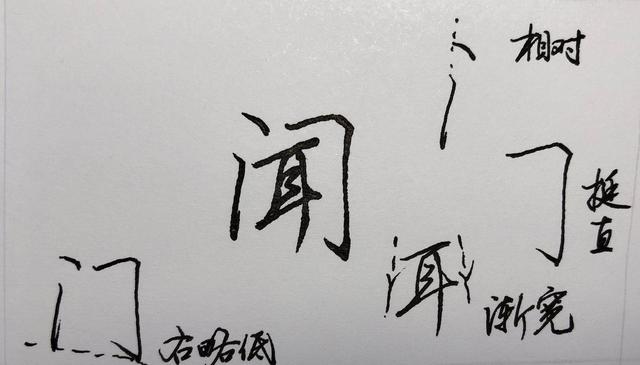 相对
闻
挺直
门
右略低
渐宽